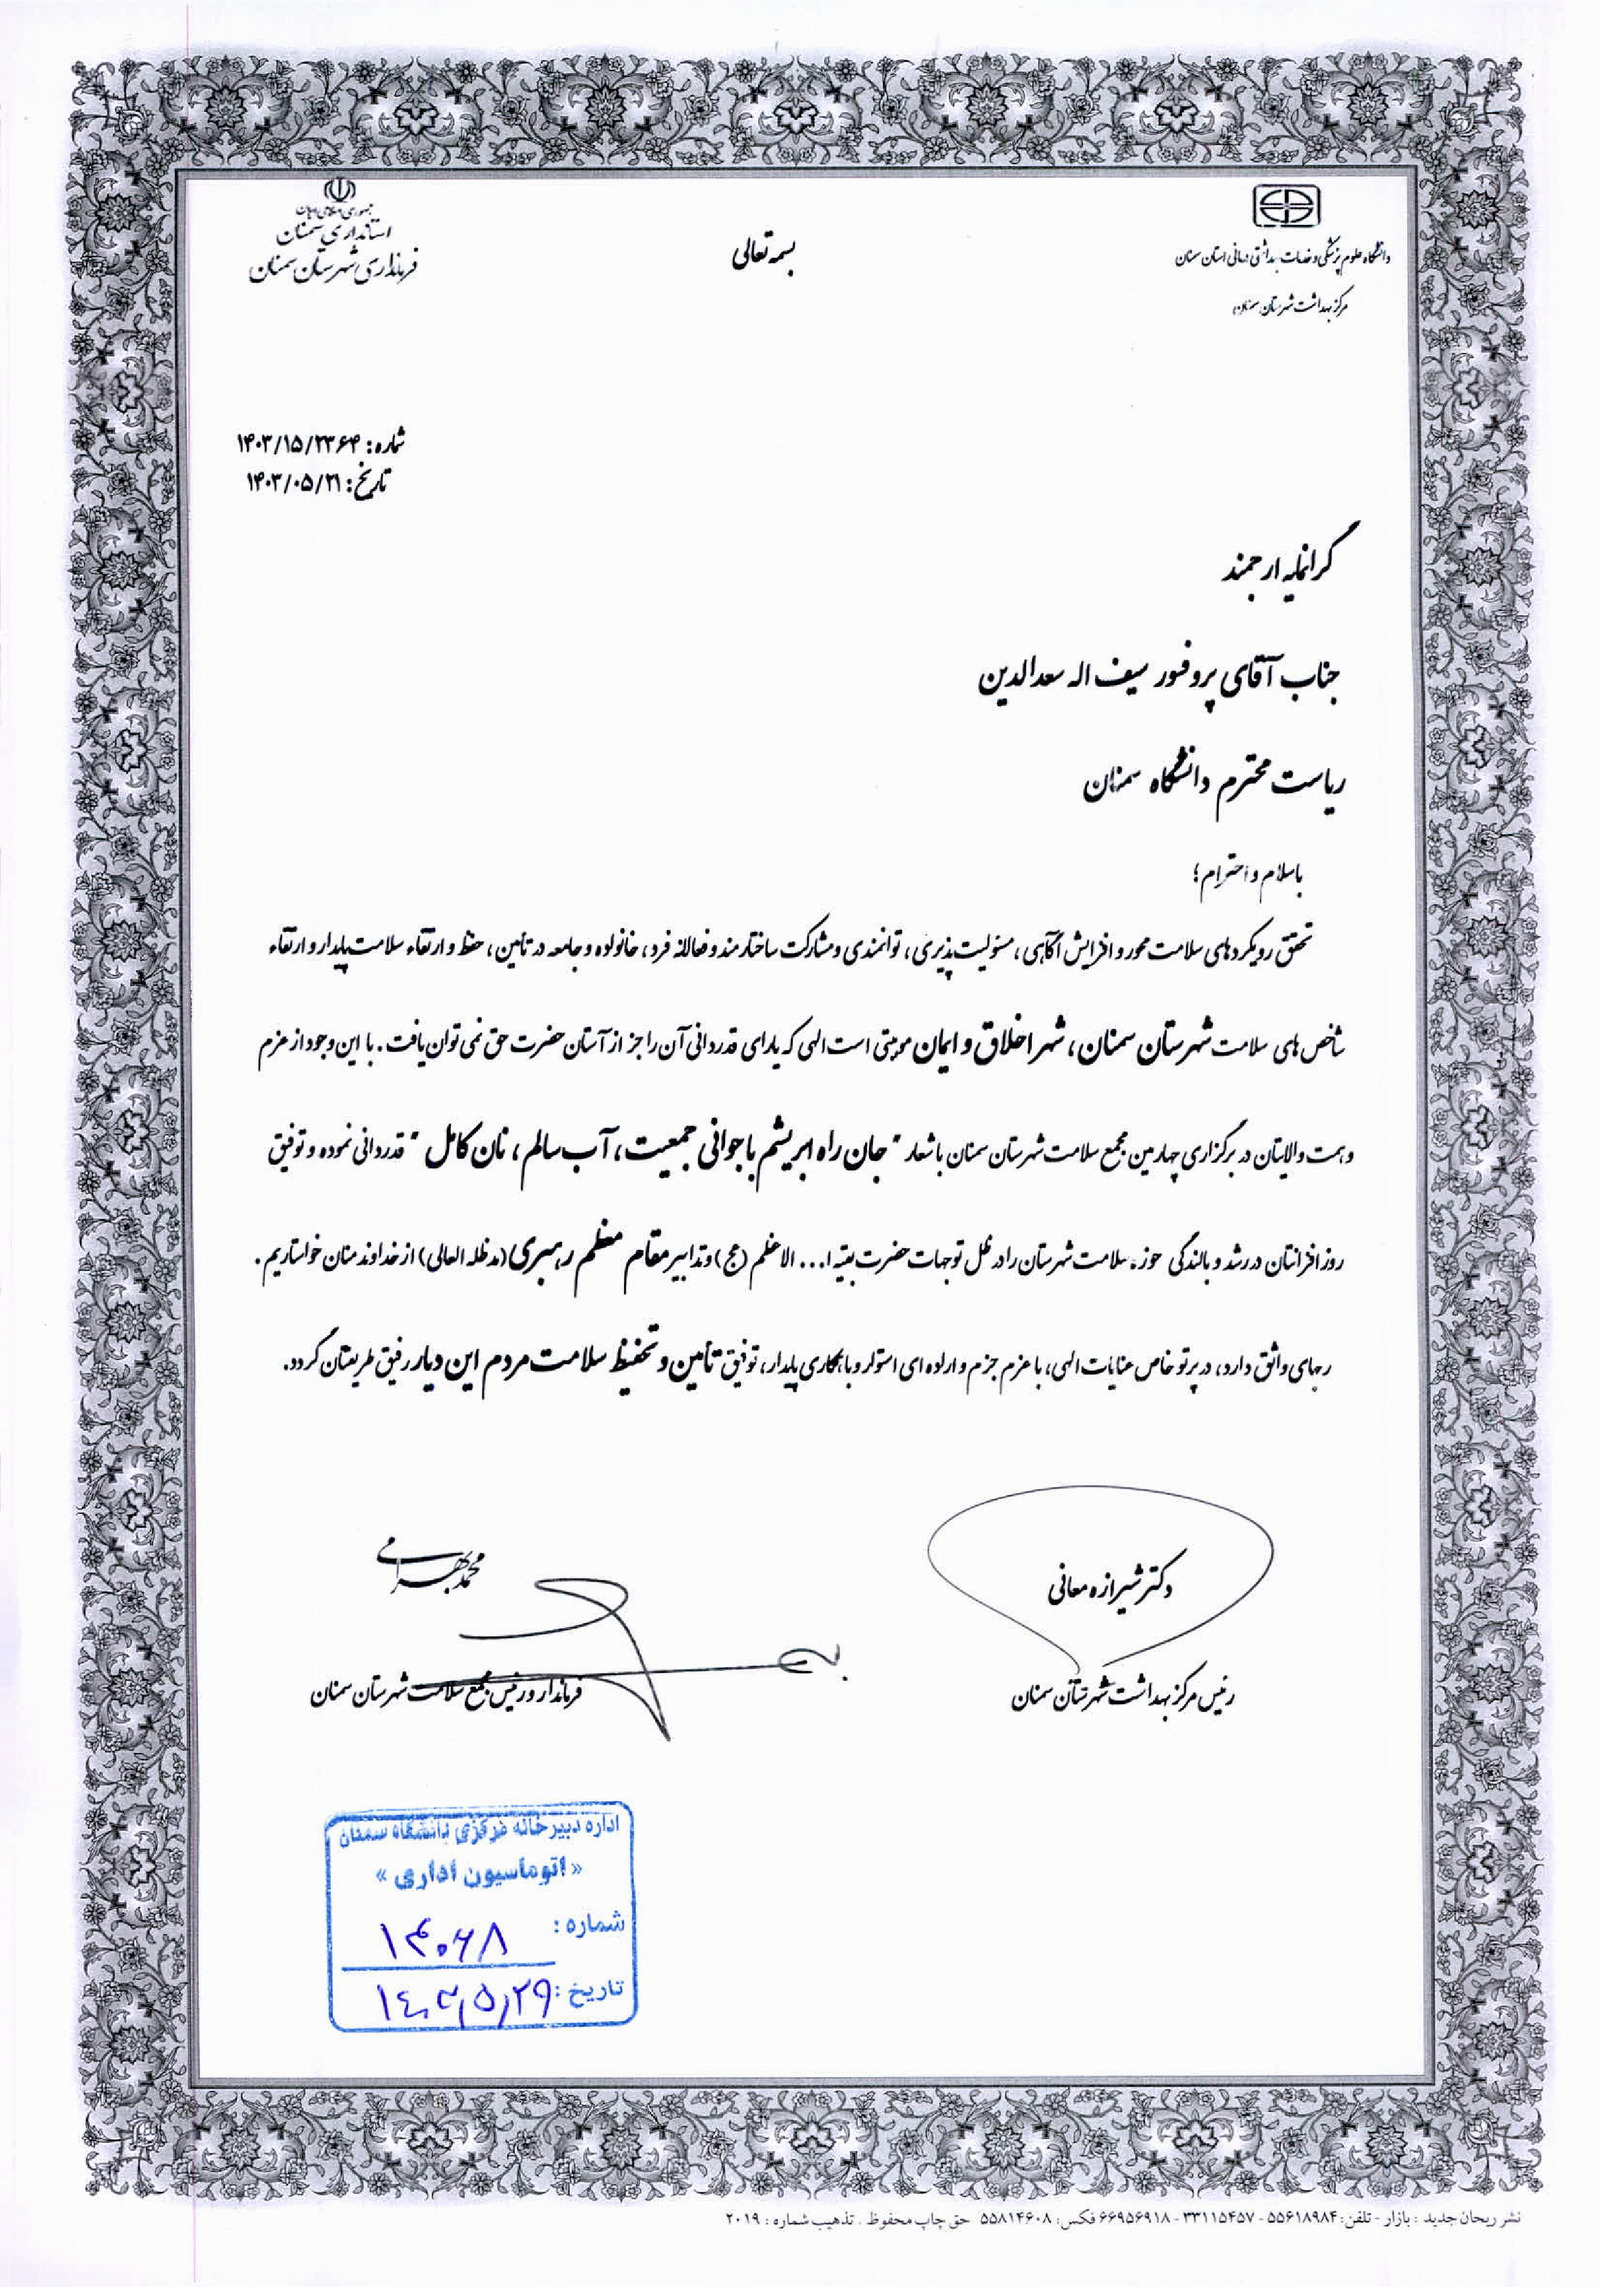 بسمه تعالی
دانشگاه علوم پزشکی و خدمات بهداشتی درمانی استان سمنان
مرکز بهداشت شهرستان سمنان
جمهوری اسلامی ایران
استانداری سمنان
فرمانداری شهرستان سمنان
شماره: ۱۴۰۳/۱۵/۲۳۶۴
تاریخ: ۱۴۰۳/۰۵/۲۱
گرانمایه ارجمند
جناب آقای پروفسور سیف اله سعدالدین
ریاست محترم دانشگاه سمنان
باسلام و احترام؛
تحقق رویکردهای سلامت محور و افزایش آگاهی، مسئولیت پذیری، توانمندی و مشارکت ساختارمند و فعالانه فرد، خانواده و جامعه در تامین، حفظ و ارتقاء سلامت پایدار و ارتقاء
شاخص های سلامت شهرستان سمنان، شهر اخلاق و ایمان موهبتی است الهی که یارای قدردانی آن را جز از آستان حضرت حق نمی توان یافت. با این وجود از عزم
و همت والایتان در برگزاری چهارمین مجمع سلامت شهرستان سمنان با شعار "جان راه ابریشم با جوانی جمعیت، آب سالم، نان کامل" قدردانی نموده و توفیق
روزافزانتان در رشد و بالندگی حوزه سلامت شهرستان را در ظل توجهات حضرت بقیه ا... الاعظم (عج) و تدابیر مقام معظم رهبری (مدظله العالی) از خداوند منان خواستاریم.
رجای واثق دارد، در پرتو خاص عنایات الهی، با عزم جزم و اراده ای استوار و با همکاری پایدار، توفیق تأمین و تحفیظ سلامت مردم این دیار رفیق طریقتان گردد.
دکتر شیرازه معانی
رئیس مرکز بهداشت شهرستان سمنان
محمد بهرامی
فرماندار و رئیس مجمع سلامت شهرستان سمنان
اداره دبیرخانه مرکزی دانشگاه سمنان
«اتوماسیون اداری»
شماره: ۱۴۰۶۸
تاریخ: ۱۴۰۳/۵/۲۹
نشر ریحان جدید : بازار - تلفن: ۵۵۶۱۸۹۸۴ - ۳۳۱۱۵۴۵۷ - ۶۶۹۵۶۹۱۸ فکس: ۵۵۸۱۴۶۰۸ حق چاپ محفوظ . تذهیب شماره : ۲۰۱۹